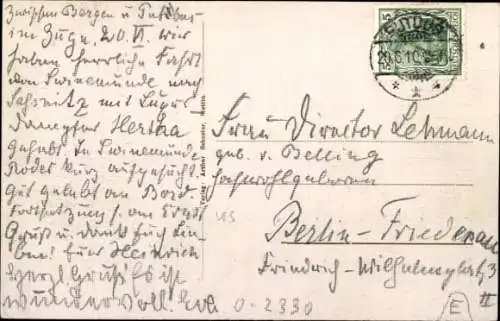 Zwischen Bergen u Putbus
im Zuge, 20. VI. wir
haben herrliche Fahrt
von Swinemünde nach
Sassnitz mit
dampfer Hertha
gehabt. In Swinemünde
Roder kurz aufgesucht.
Gut gelebt an Bord.
Fortsetzung f. an Ernst
Gruß u. Dank Euch Lie-
ben! Euer Heinrich
Herzl. Gruß! Es ist
wundervoll.
Frau Director Lehmann
geb. v. Belling
Hochwohlgeboren
Berlin-Friedenau
Friedrich-Wilhelmplatz 3
II
20.6.10.
0-2330
E